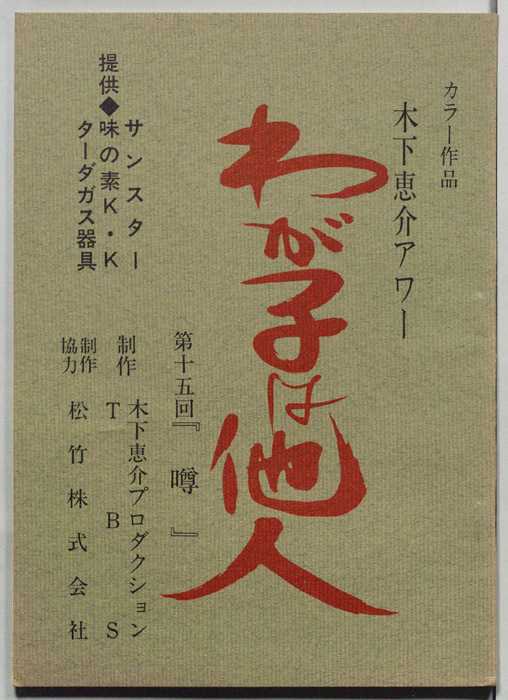 カラー作品
木下恵介アワー
わが子は他人
第十五回『噂』
提供◆
サンスター
味の素K・K
ターダガス器具
制作
木下恵介プロダクション
TBS
制作協力
松竹株式会社